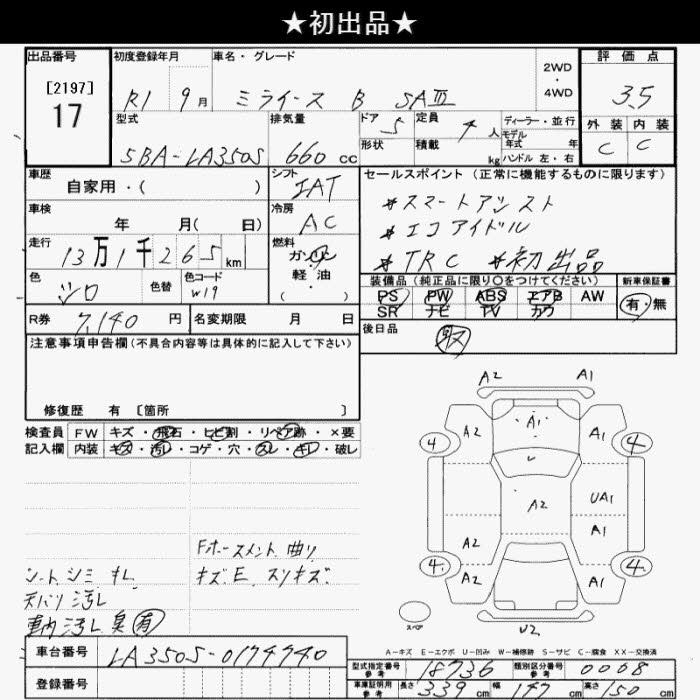 ★初出品★
出品番号 初度登録年月 車名・グレード 2WD ・ 4WD 評価点
[2197]
17
R1 9月 ミライース B SAⅢ 3.5
型式 排気量 ドア 定員 ディーラー・並行 外装 内装
5BA-LA350S 660 cc 5 4人 モデル年式 年 C C
形状 積載 kg ハンドル 左・右
車歴 シフト セールスポイント (正常に機能するものに限ります)
自家用・( ) IAT
*スマートアシスト
車検 冷房
年 月( 日) AC
*エコアイドル
走行 燃料
13万1千265km ガソリン
*TRC *初出品
色 色替 色コード 軽油
シロ W19 ・( )
装備品 (純正品に限り○をつけてください) 新車保証書
PS PW ABS エアB AW 有・無
SR ナビ TV カワ
R券 7,140円 名変期限 月 日
後日品 取
注意事項申告欄(不具合内容等は具体的に記入して下さい)
修復歴 有 [箇所 ]
検査員 FW キズ・飛石・ヒビ割・リペア跡・×要
記入欄 内装 キズ・汚れ・コゲ・穴・スレ・キレ・破レ
A2 A1
4 A2 A1 A1 4
A2 UA1
A1
A2
4 A2 A1 4
U2
スペア
Fホースメント 曲り
シートシミ キレ キズ、E、スリキズ
天バリ汚レ
車内汚レ 臭有
A-キズ E-エクボ U-凹み W-補修跡 S-サビ C-腐食 XX-交換済
車台番号 LA350S-0174740
登録番号
型式指定番号 参考 18736 類別区分番号 参考 0008
車庫証明用 参考 長さ 339cm 幅 147cm 高さ 150cm